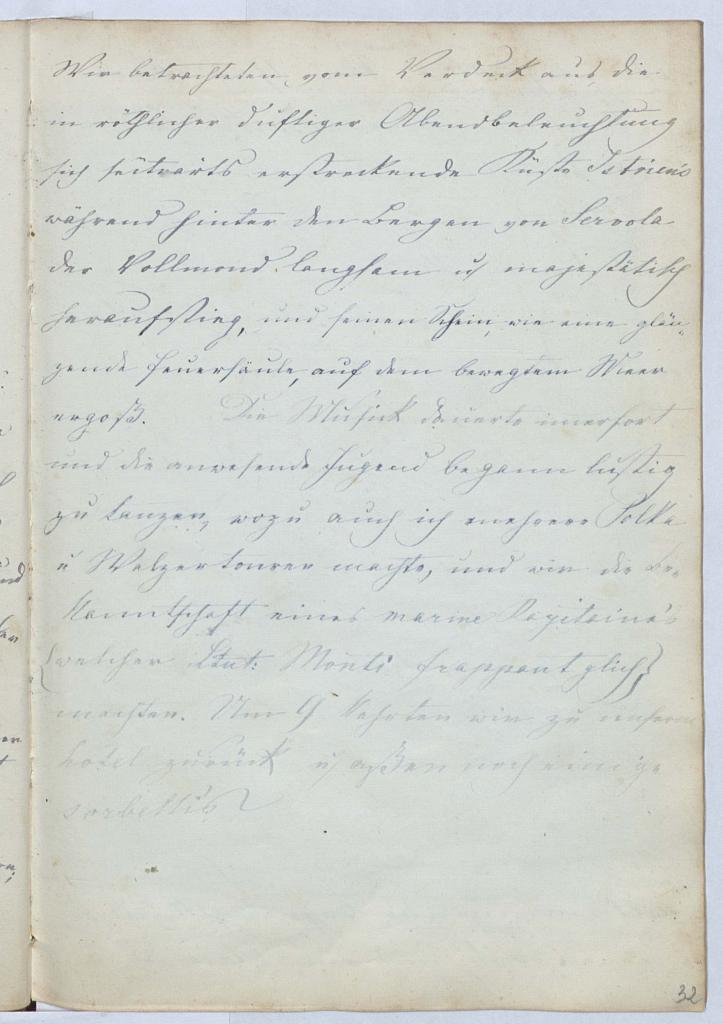 Wir betrachteten vom Verdeck aus, die
in röthlicher duftiger Abendbeleuchtung
sich seitwärts erstreckende Küste Istrien's
während hinter den Bergen von Servola
der Vollmond langsam u majestätisch
heraufstieg, und seinen Schein, wie eine glän-
zende Feuersäule, auf dem bewegtem Meer
ergoß. Die Musick dauerte immerfort
und die anwesende Jugend begann lustig
zu tanzen, wozu auch ich mehrere Polka
u Walzertouren machte, und wir die Be-
kanntschaft eines marine Kapitaine's
(welcher Ltnt: Monti frappant glich)
machten. Um 9 kehrten wir zu unserm
hotel zurück u aßen noch einige
sorbetti's
32